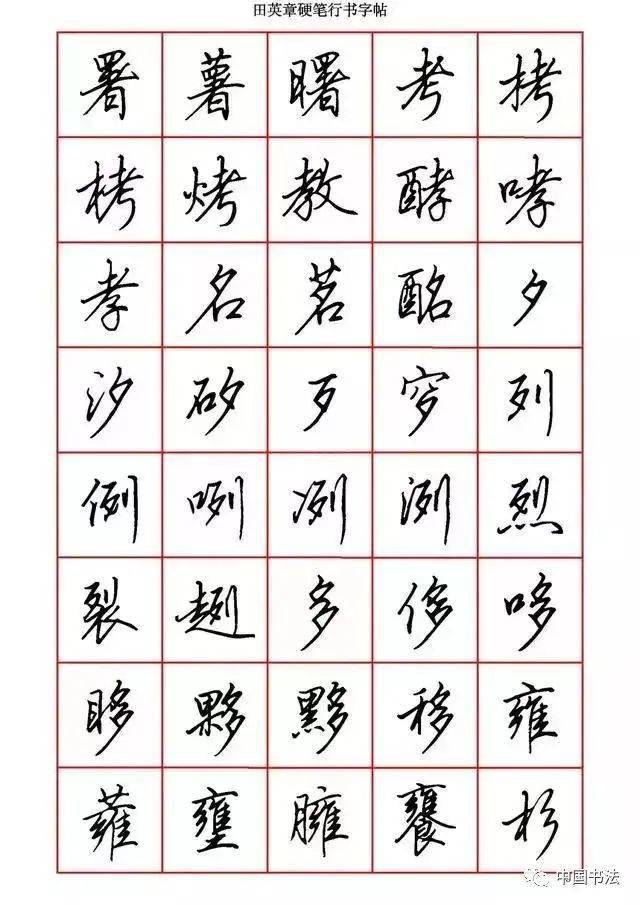 田英章硬笔行书字帖
署 薯 曙 考 拷
栲 烤 教 酵 哮
孝 名 茗 酩 夕
汐 矽 歹 穸 列
例 咧 冽 洌 烈
裂 趔 多 侈 哆
眵 夥 黟 移 雍
蕹 壅 臃 饔 杉
中国书法